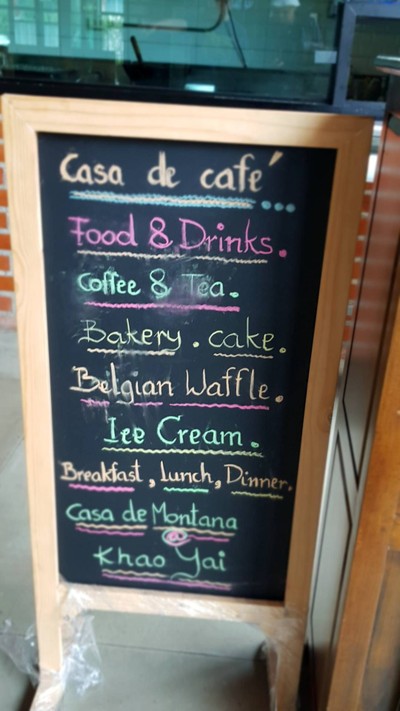 Casa de café
Food & Drinks.
Coffee & Tea.
Bakery . cake.
Belgian Waffle.
Ice Cream.
Breakfast, Lunch, Dinner.
Casa de Montana
@
Khao Yai